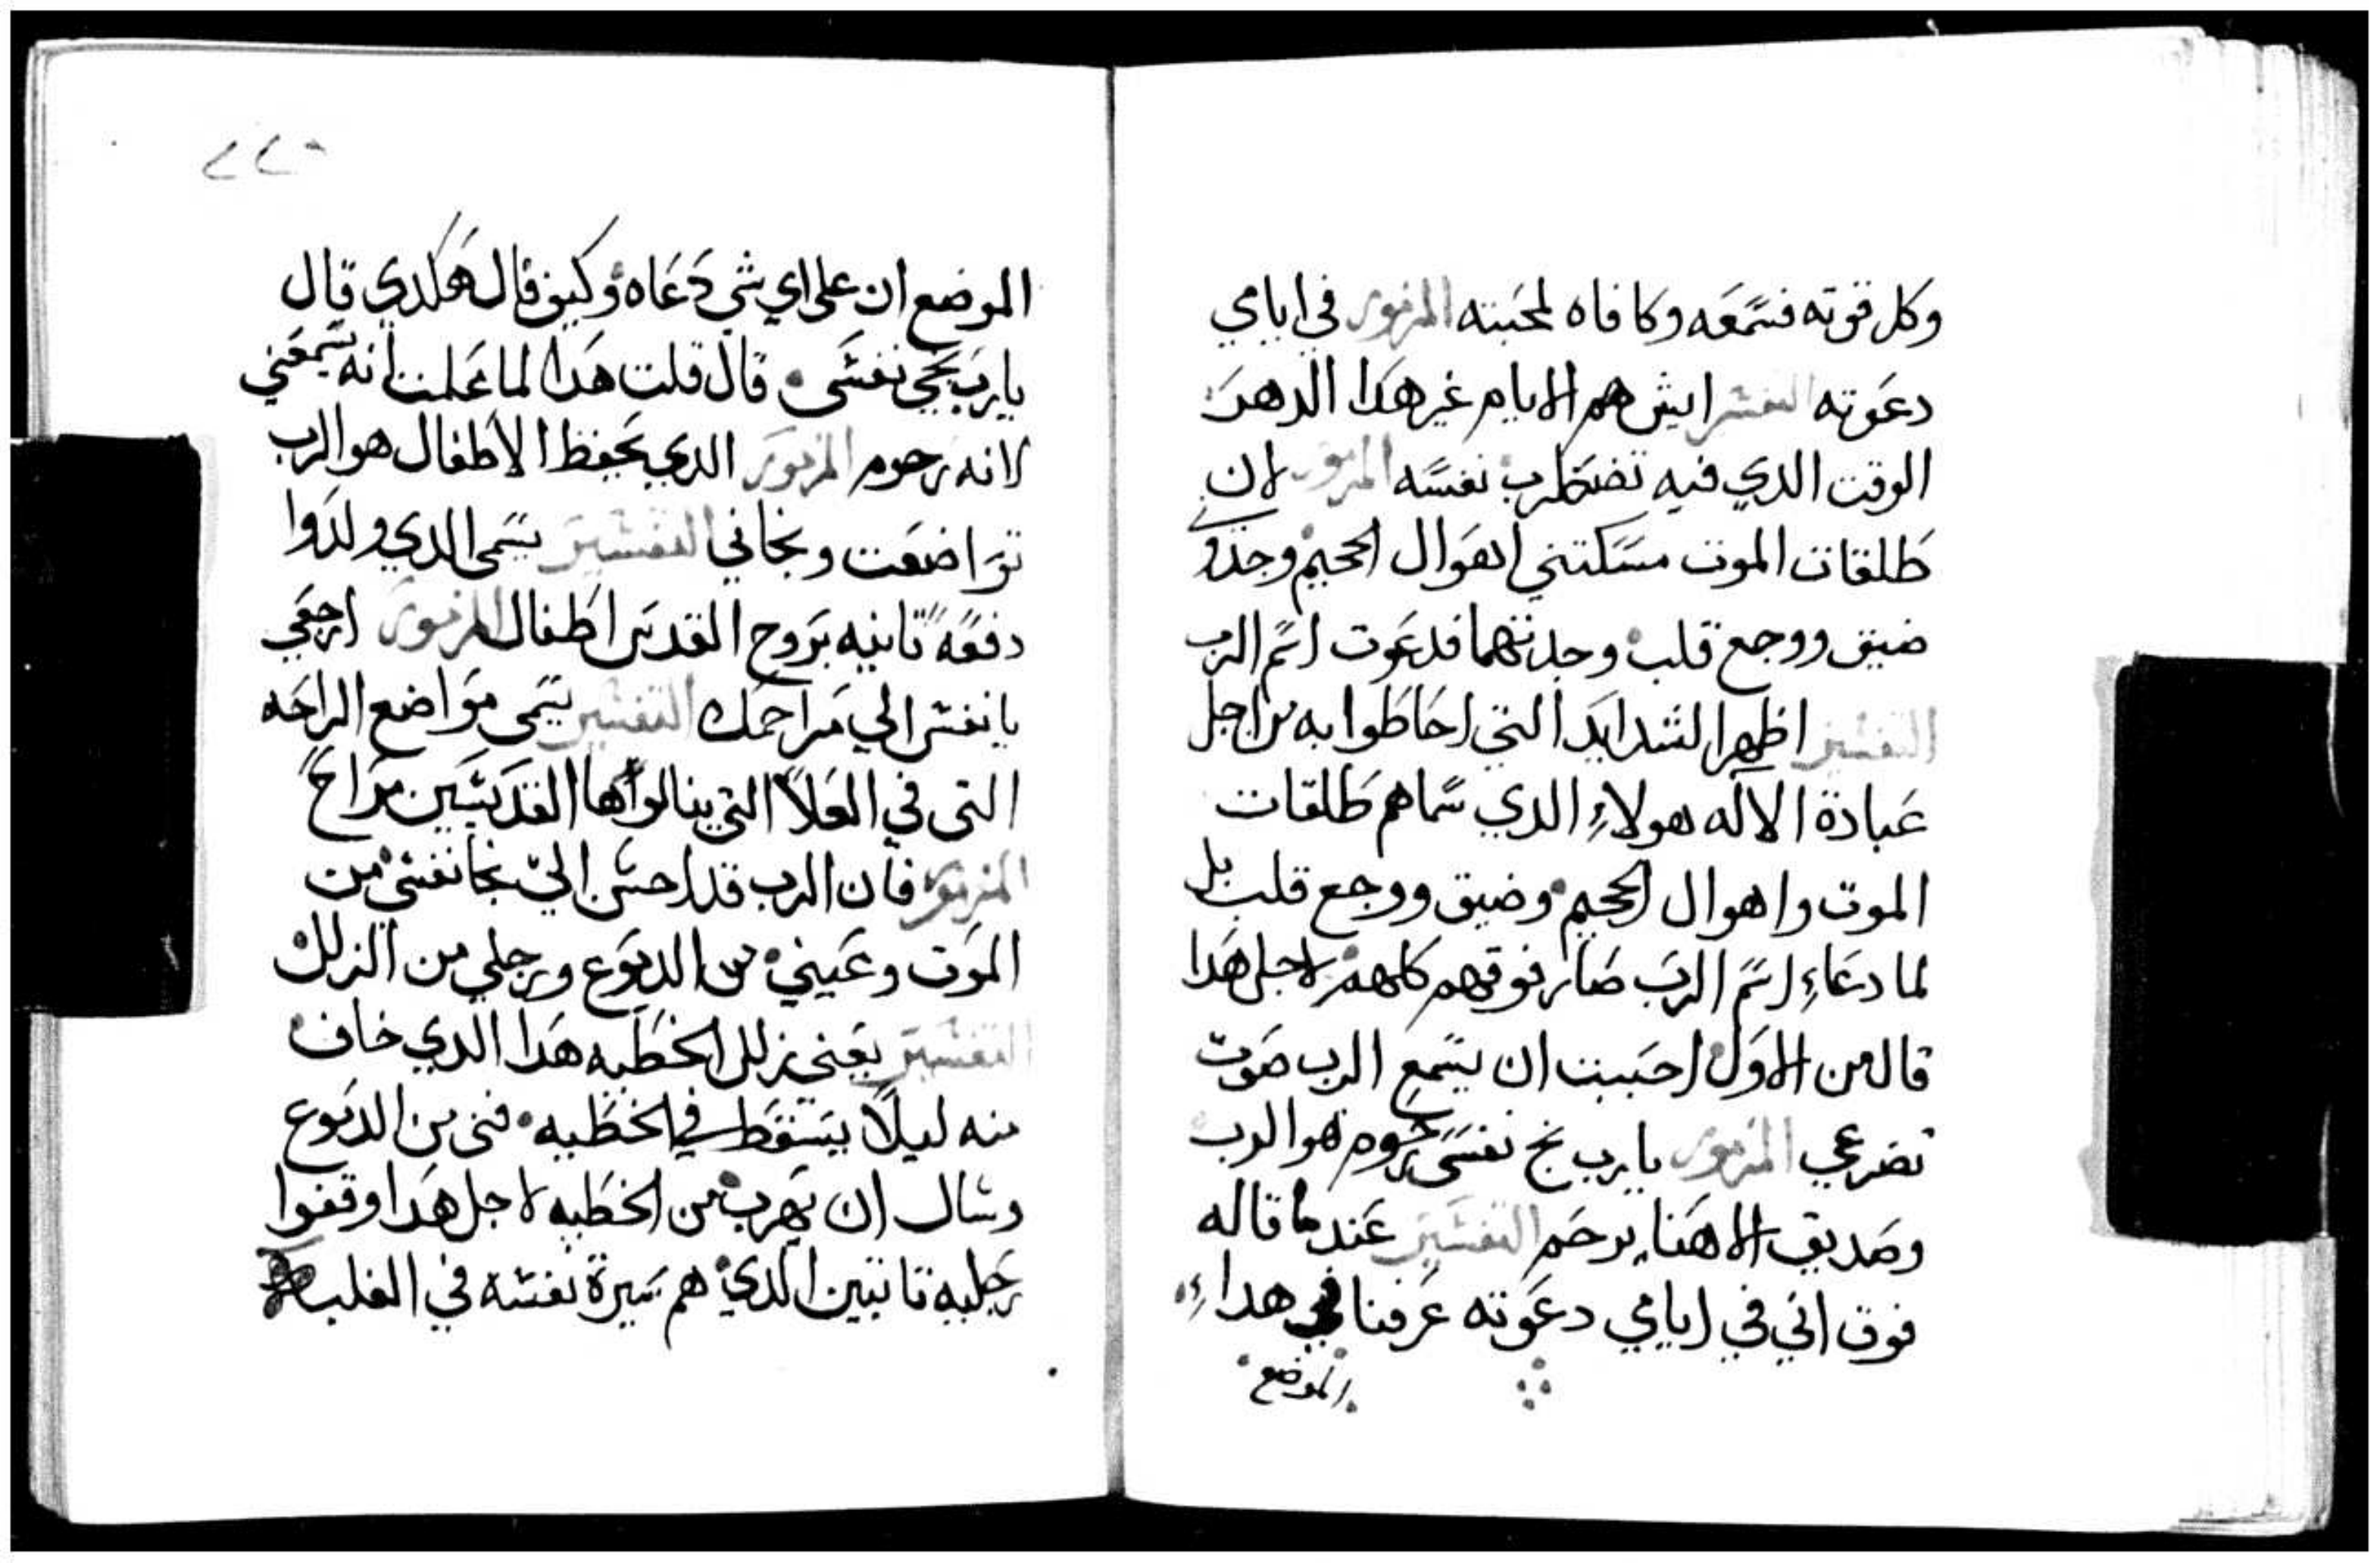 وكل قوته فسمعه وكافاه لمحبته المزمور في ايامي
دعوته التفسير ايش هم الايام غير هدا الدهر
الوقت الدي فيه تضطرب نفسه المزمور لان
طلقات الموت مسكتني اهوال الجحيم وجدوني
ضيق ووجع قلب وجدتهما فدعوت اسم الرب
التفسير اظهر الشدايد التي احاطوا به من اجل
عبادة الاله هولاء الدي سماهم طلقات
الموت واهوال الجحيم وضيق ووجع قلب بل
لما دعاء اسم الرب صار فوقهم كلهم لاجل هدا
قال من الاول احببت ان يسمع الرب صوت
تضرعي المزمور يا رب نج نفسي رحوم هو الرب
وصديق الاهنا يرحم التفسير عندما قاله
فوق اني في ايامي دعوته عرفنا في هداء
الموضع
٢٢٠
الموضع ان على اي شي دعاه وكيف قال هكدي قال
يا رب نجي نفسي قال قلت هدا لما علمت انه يسمعني
لانه رحوم المزمور الدي يحفظ الاطفال هو الرب
تواضعت ونجاني التفسير يسمى الدي ولدوا
دفعه تانيه بروح القدس اطفال المزمور ارجعي
يا نفسي الي مراحمك التفسير يسمى مواضع الراحه
التى في العلا التي ينالوها القديسين مراحم
المزمور فان الرب قد احسن الي نجا نفسي من
الموت وعيني من الدموع ورجلي من الزلل
التفسير يعني زلل الخطيه هدا الدي خاف
منه ليلا يسقط في الخطيه فنى من الدموع
وسال ان يهرب من الخطيه لاجل هدا وقفوا
رجليه تابتين الدي هم سيرة نفسه في الغلب